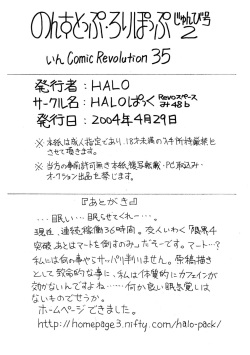 のんすとっぷ・ろりぽっぷ じゅんび号2
いん Comic Revolution 35
発行者：HALO
サークル名：HALOぱっく Revoスペース み48b
発行日：2004年4月29日
※ 本紙は成人指定であり、18才未満の入手所持厳禁と
させて頂きます。
※ 当方の事前許可無き本紙複写転載・PC取込み・
オークション出品を禁じます。
『あとがき』
…眠い…眠らせてくれー…。
現在、連続稼働36時間。友人いわく「限界4
突破あとはマートを倒すのみ」だそーです。マート…？
私には何の事やらサッパリ判りません。原稿描き
として致命的な事に、私は体質的にカフェインが
効かないんですよね……何か良い眠気覚しは
ないものでせうか。
ホームページできました。
http://homepage3.nifty.com/halo-pack/